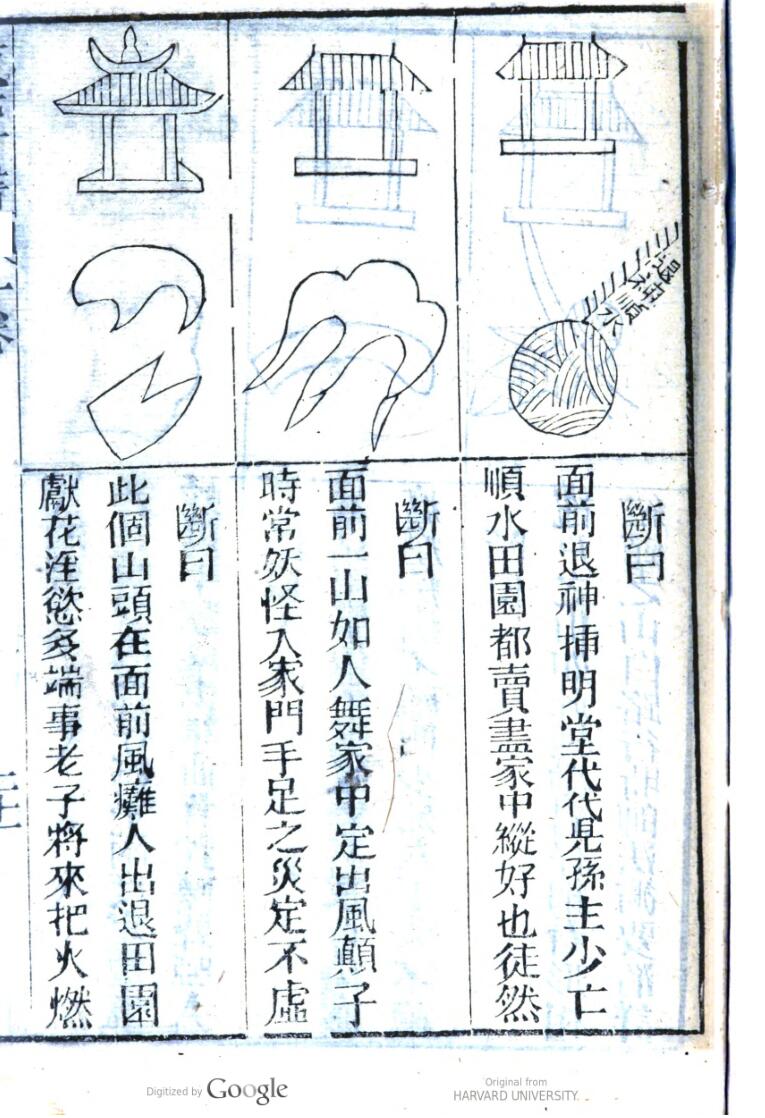 退神順水
斷曰
面前退神揷明堂代代見孫主少亡
順水田園都賣盡家中縱好也徒然
斷曰
面前一山如人舞家中定出風顛子
時常妖怪入家門手足之災定不虛
斷曰
此個山頭在面前風癱人出退田園
獻花淫慾多端事老子將來把火燃
Digitized by Google
Original from
HARVARD UNIVERSITY